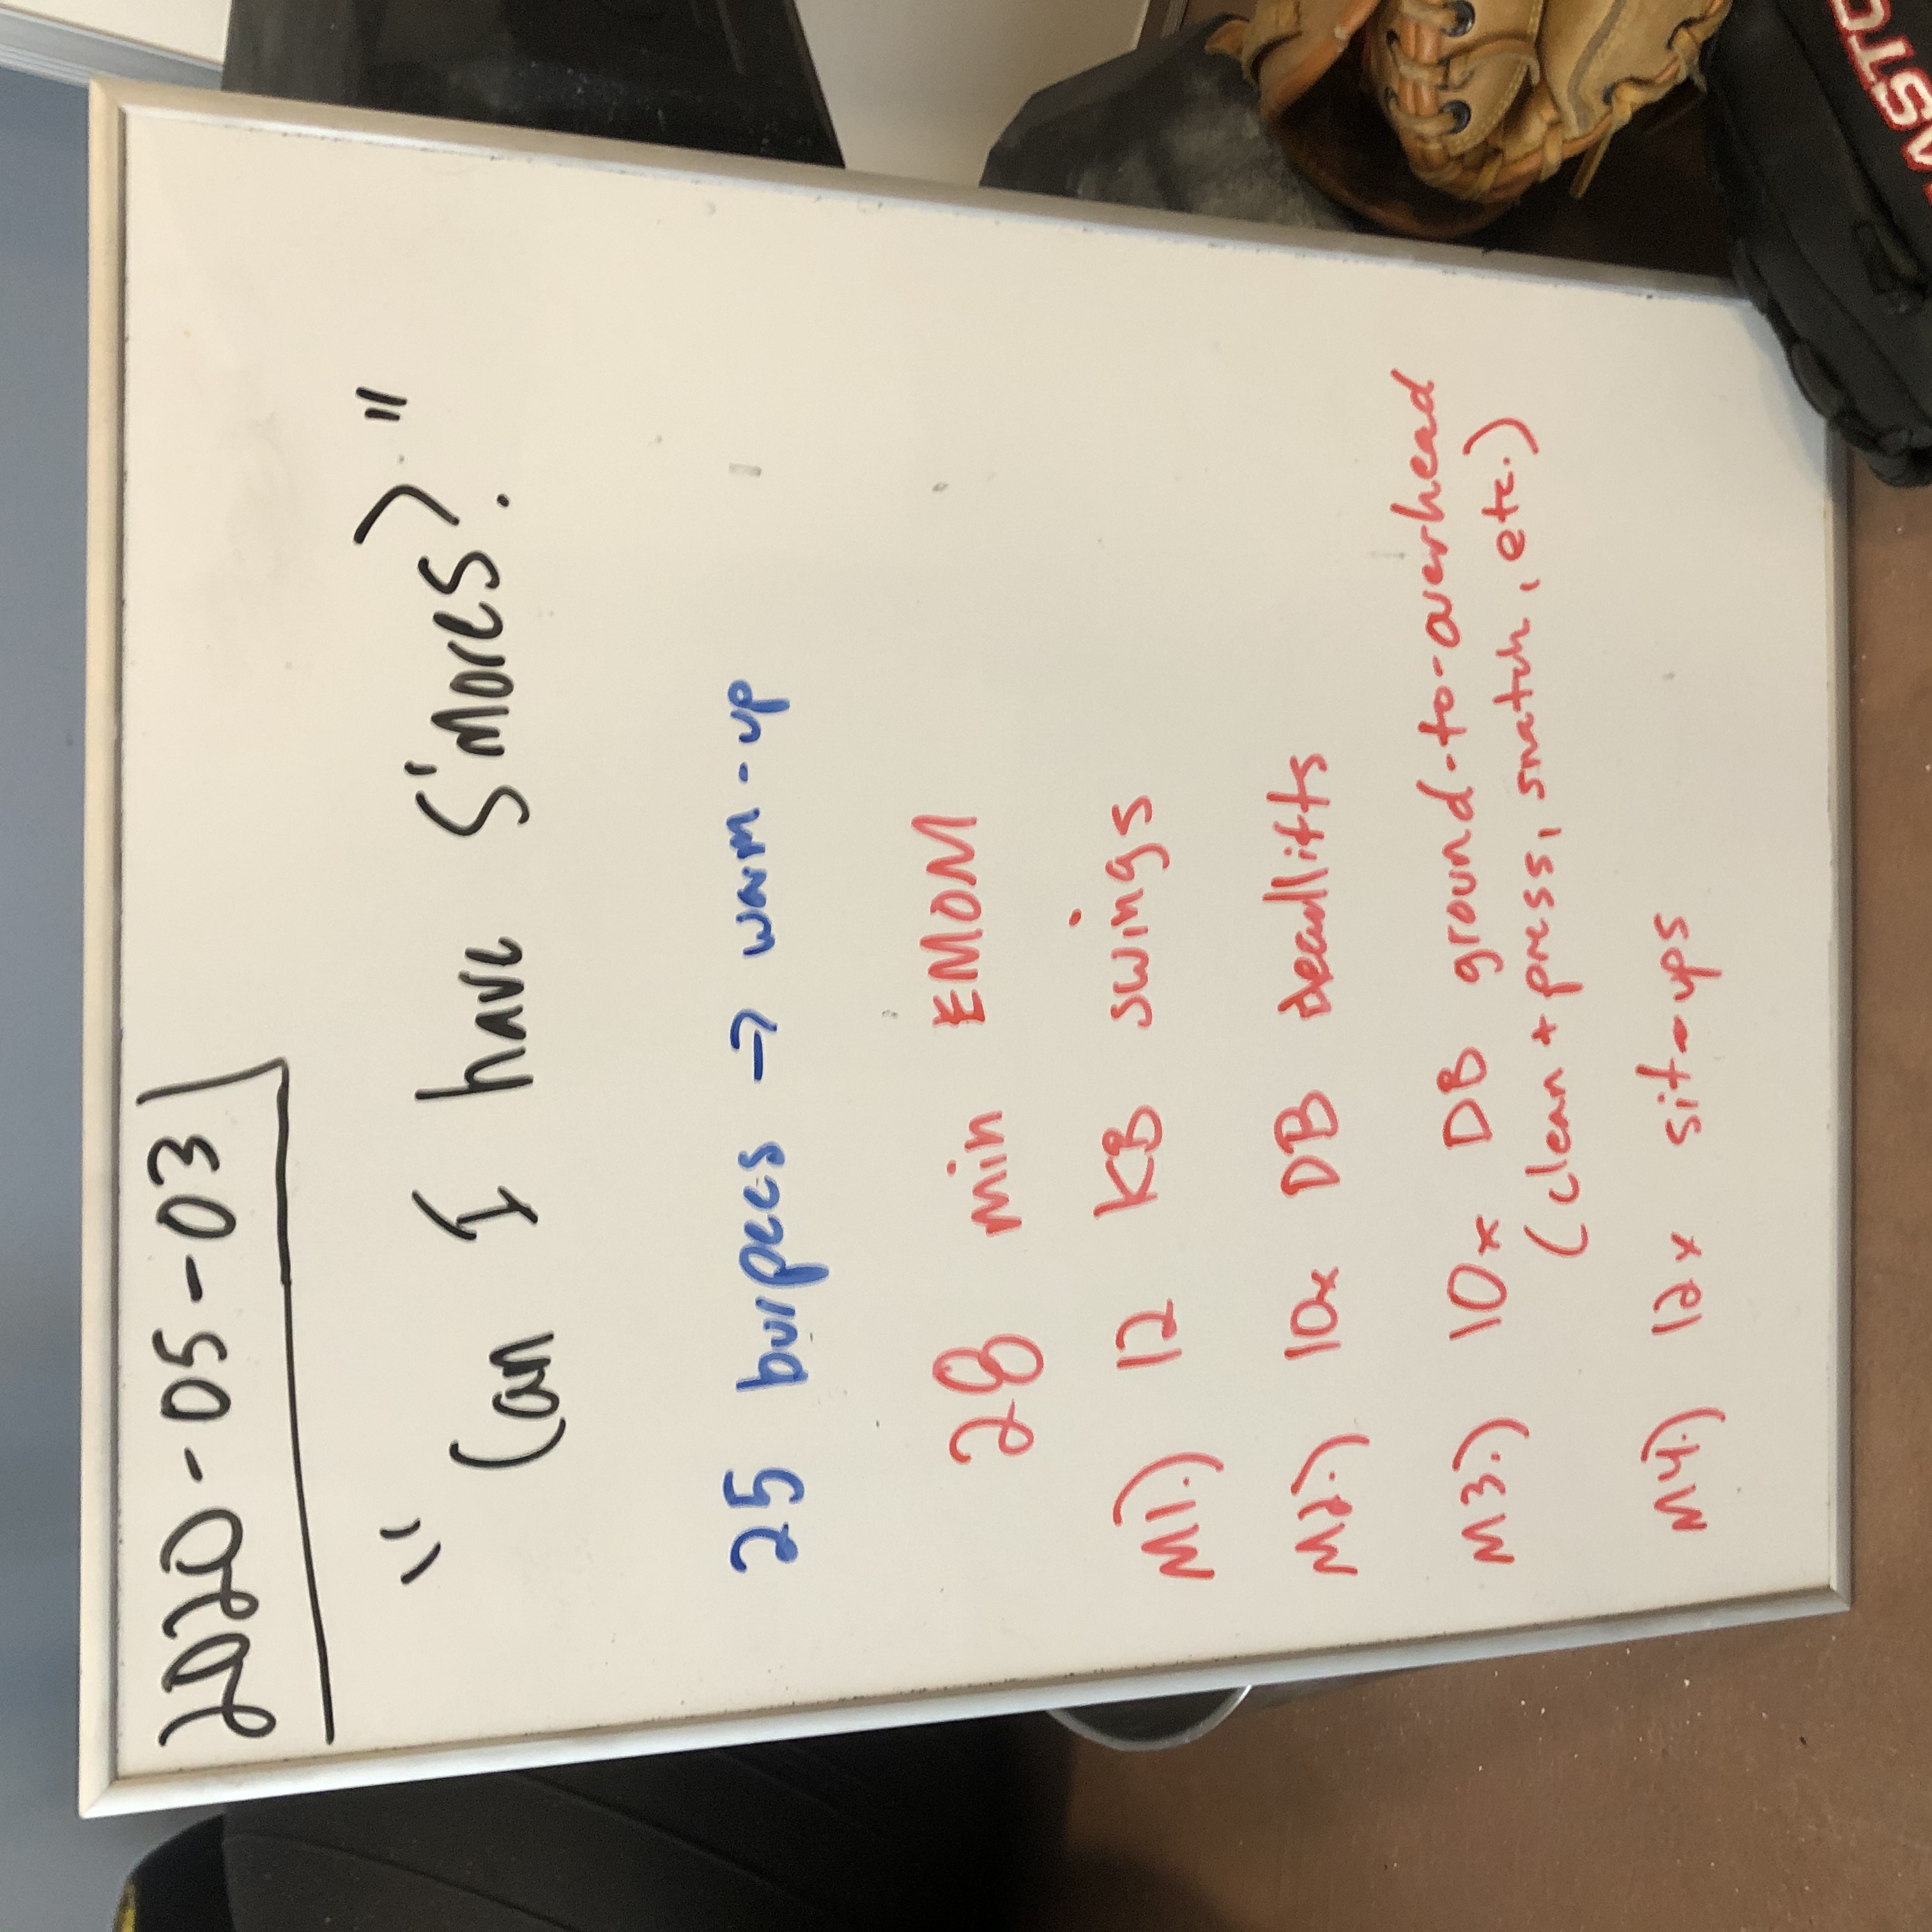 2020-05-03
"Can I have S'mores?"
25 burpees → warm-up
28 min EMOM
M1.) 12 KB swings
M2.) 10x DB deadlifts
M3.) 10x DB ground-to-overhead
(clean + press, snatch, etc.)
M4.) 12x sit-ups